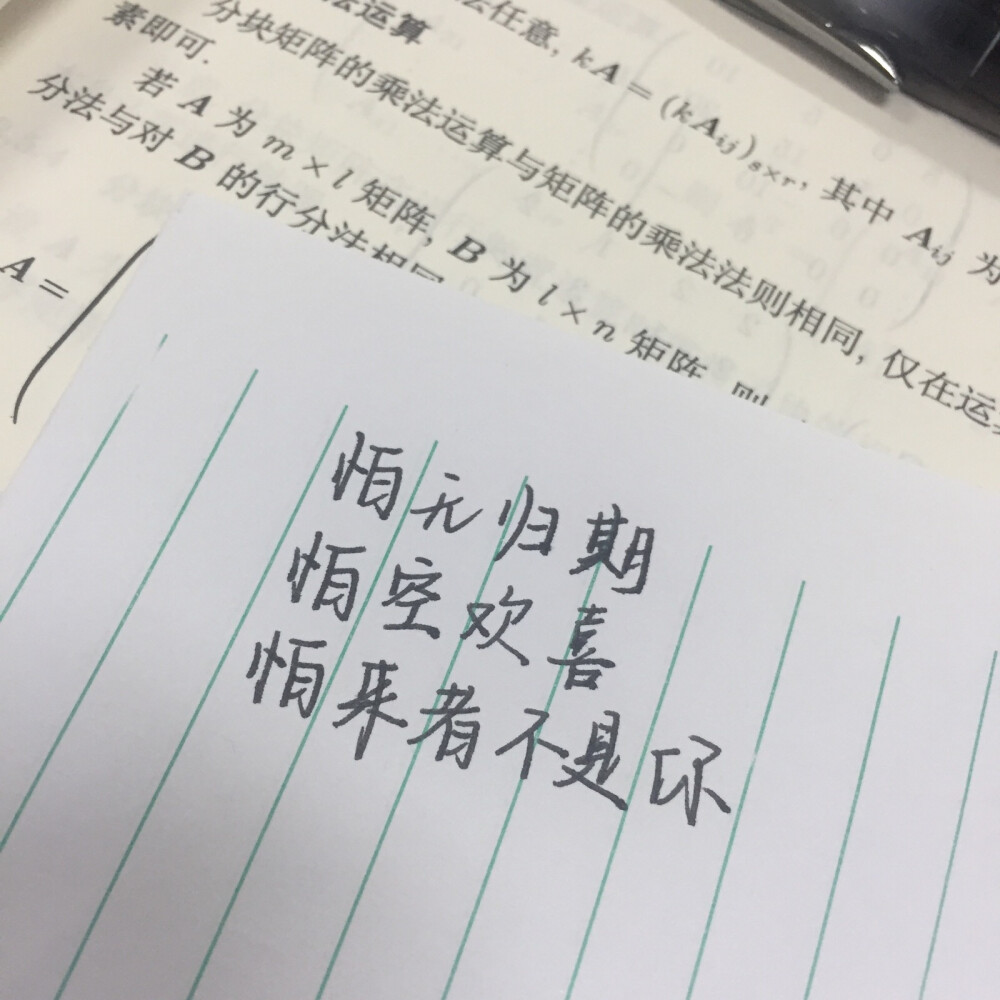 法任意, kA = (kA_{ij})_{s×r}, 其中 A_{ij} 为
法运算
分块矩阵的乘法运算与矩阵的乘法法则相同, 仅在运算
素即可.
若 A 为 m × l 矩阵, B 为 l × n 矩阵, 则
分法与对 B 的行分法相同
A =
怕无归期
怕空欢喜
怕来者不是你